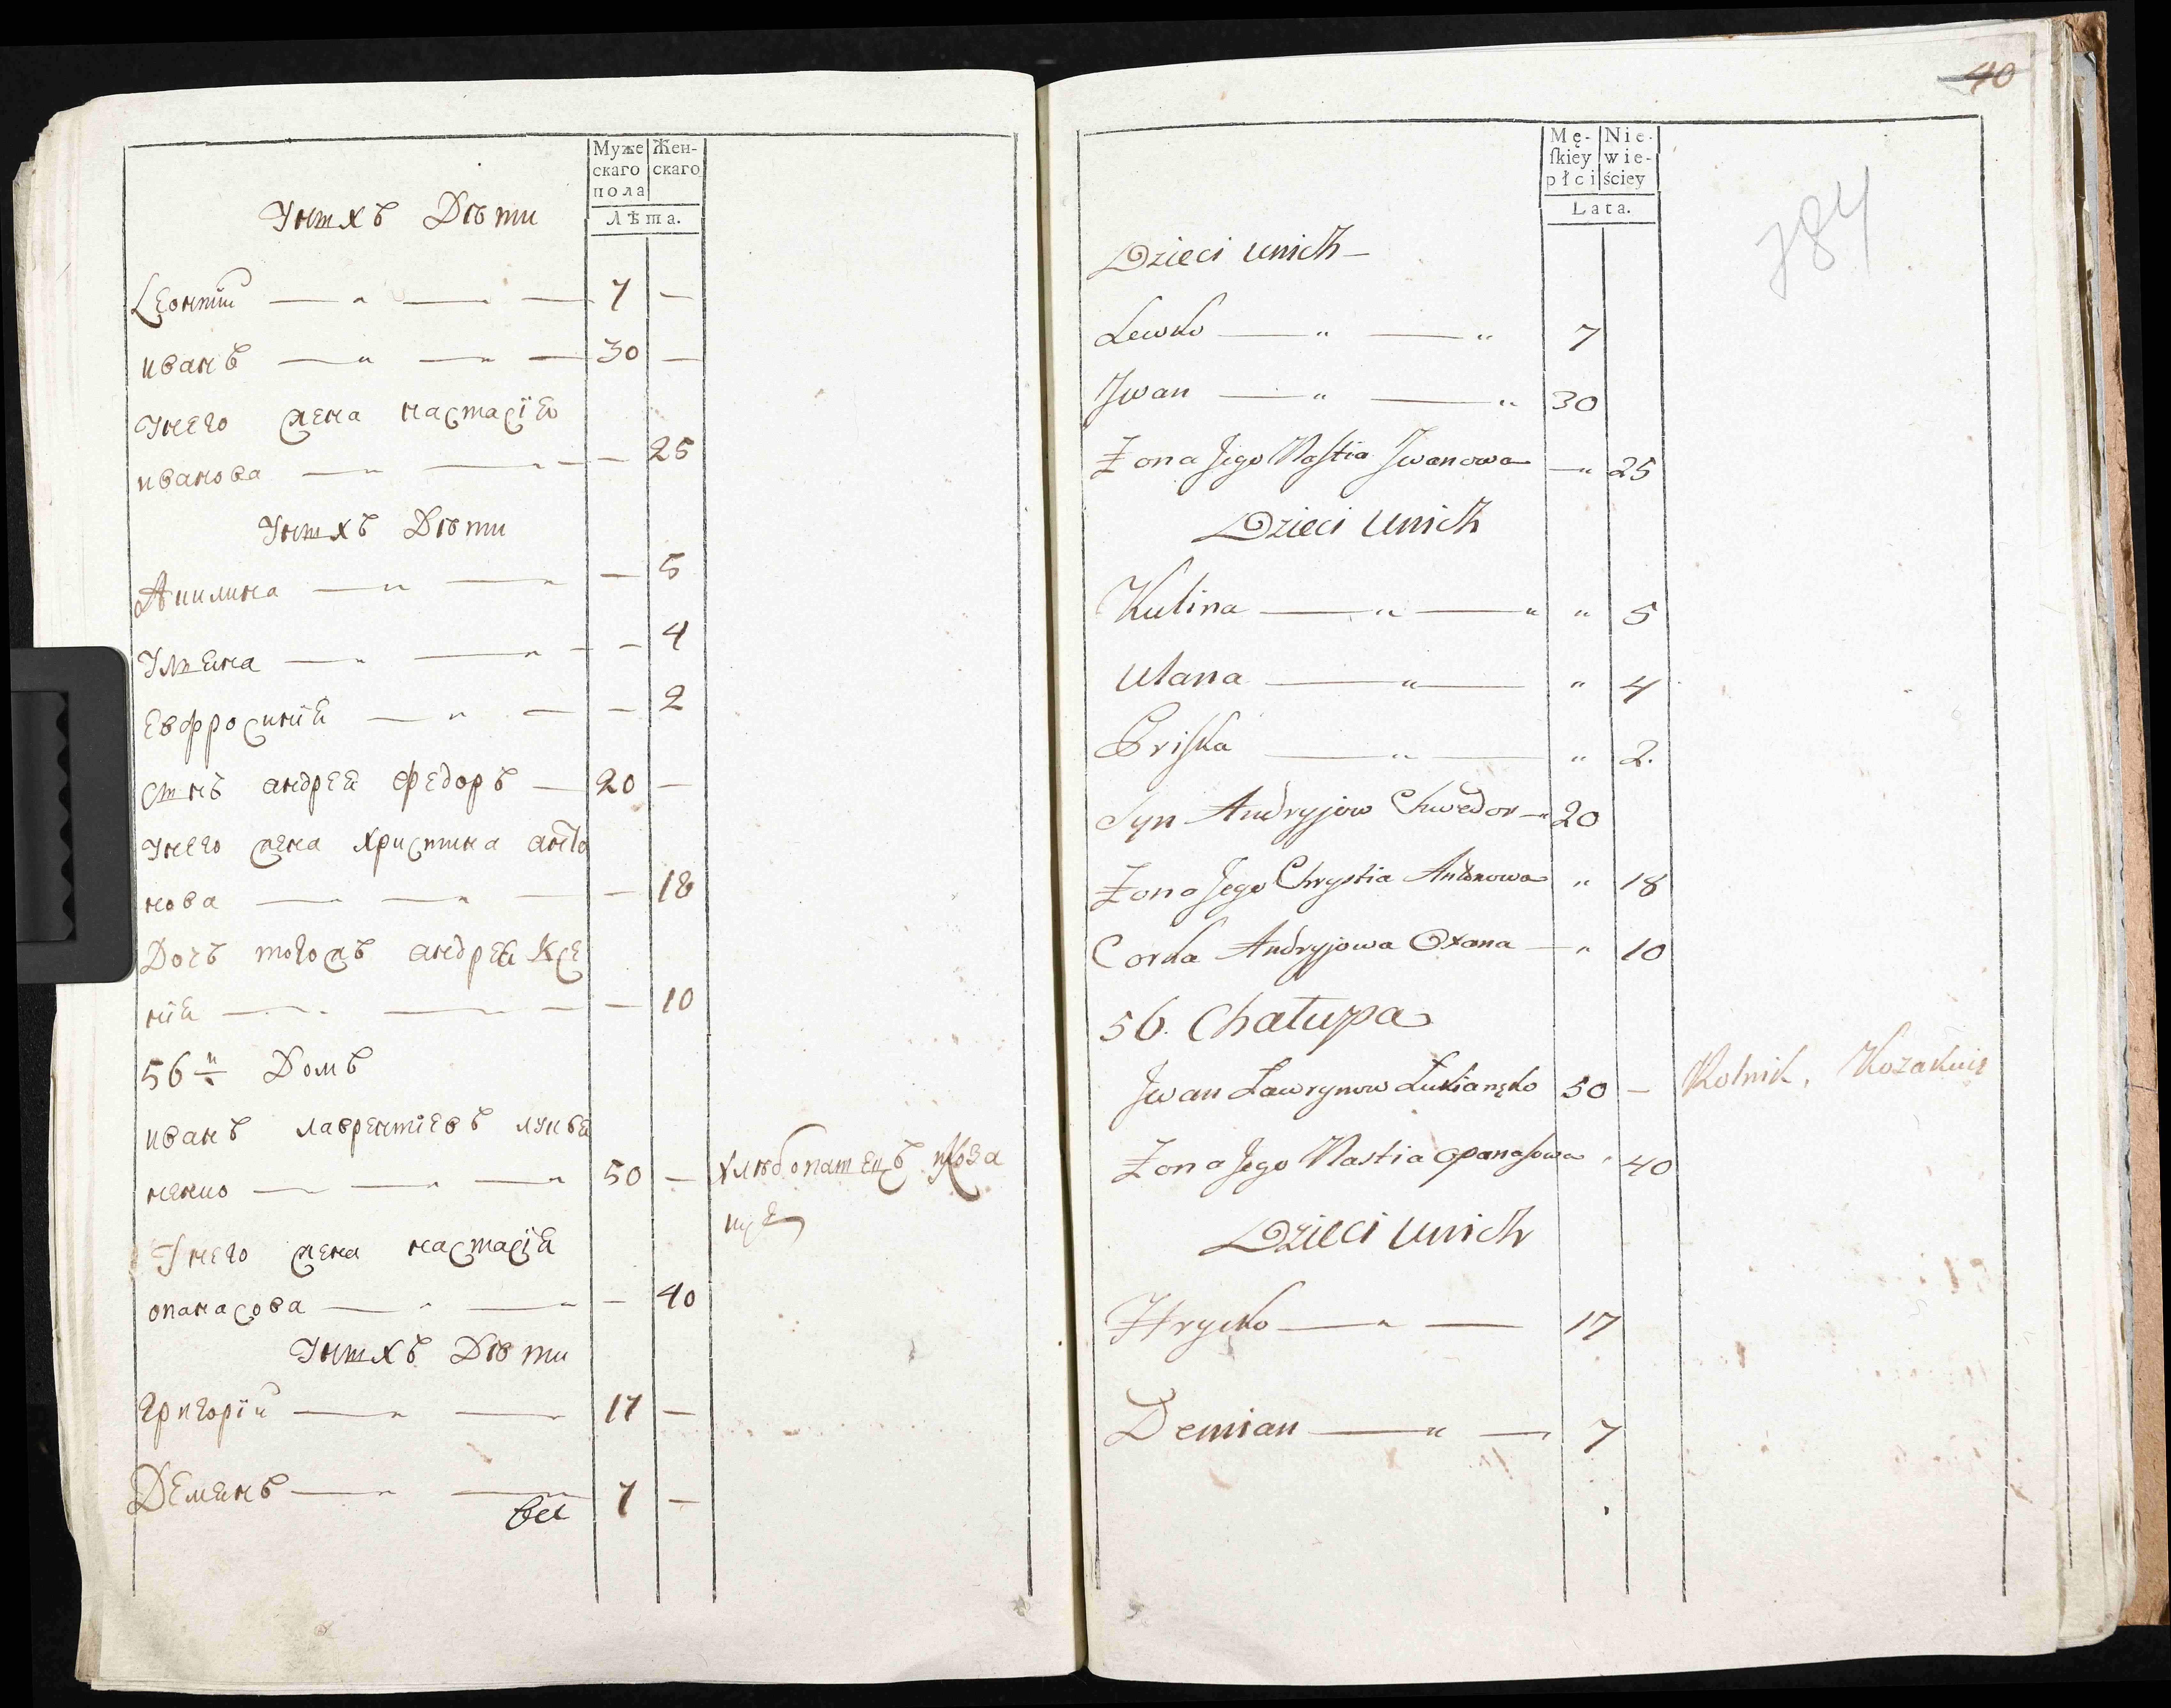 Муже Жен-
скаго скаго
пола
Лѣта.
Унихъ Дѣти
Леонтій 7 —
иванъ 30 —
Унего жена настасія
иванова — 25
Унихъ Дѣти
Акилина — 5
Ульяна — 4
Евфросинія — 2
сынъ андрея федоръ — 20 —
Унего жена христина анто
нова — 18
Дочь тогожъ андрея Ксе
нія — 10
56й Домъ
иванъ лаврентіевъ лукья
ненко 50 — хлѣбопашецъ Коза
Унего жена настасія
опанасова — 40
Унихъ Дѣти
Григорій 17 —
Демянъ 7 —
40
784
Mę- Nie-
ſkiey wie-
płci ściey
Lata.
Dzieci unich —
Lewko 7
Jwan 30
Żona Jego Naſtia Jwanowa — 25
Dzieci Unich
Kulina " 5
Ulana " 4
Priſka " 2.
Syn Andryjow Chwedor — 20
Żona Jego Chrystia Antonowa " 18
Corka Andryjowa Oxana — " 10
56. Chałupa
Jwan Ławrynow Łukianęko 50 — Rolnik, Kozakuie
Żona Jego Nastia Opanasowa 40
Dzieci Unich
Hrycko 17
Demian 7